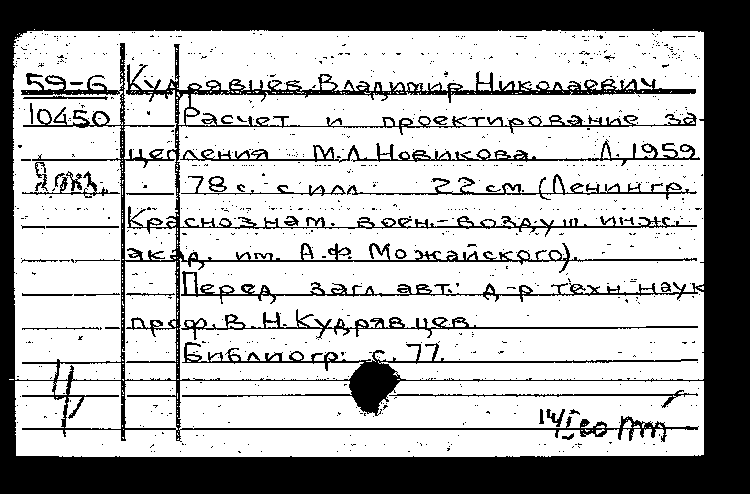 59-6 Кудрявцев, Владимир Николаевич.
10450 Расчет и проектирование за-
цепления М.Л. Новикова. Л., 1959
2 экз. 78 с. с илл. 22 см (Ленингр.
Краснознам. воен.-воздуш. инж.
акад. им. А.Ф. Можайского).
Перед загл. авт.: д-р техн. наук
проф. В.Н. Кудрявцев.
Библиогр: с. 77.
14/I 60